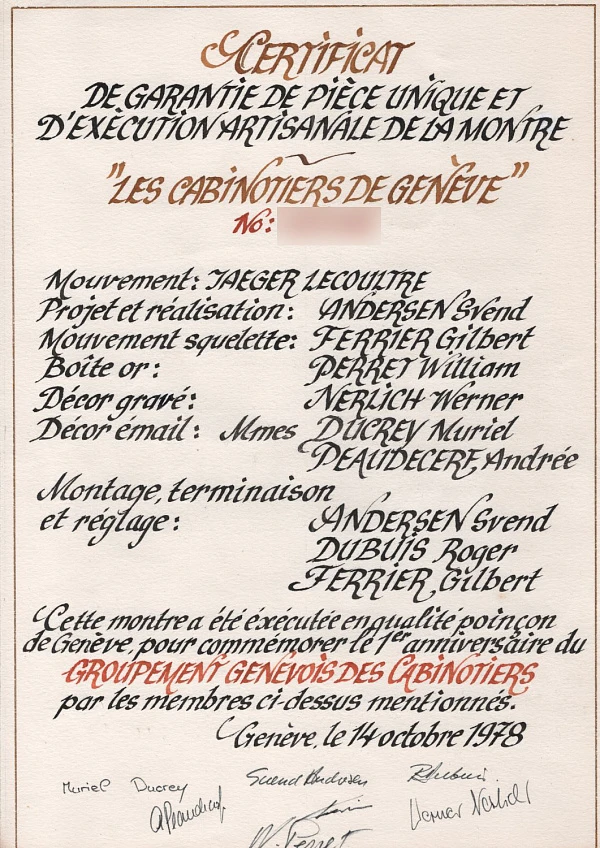 CERTIFICAT
DE GARANTIE DE PIÈCE UNIQUE ET
D'EXÈCUTION ARTISANALE DE LA MONTRE
"LES CABINOTIERS DE GENÈVE"
No:
Mouvement: JAEGER LECOULTRE
Projet et réalisation: ANDERSEN Svend
Mouvement squelette: FERRIER Gilbert
Boîte or: PERRET William
Décor gravé: NERLICH Werner
Décor émail: Mmes DUCREY Muriel
PEAUDECERF, Andrée
Montage, terminaison
et réglage: ANDERSEN Svend
DUBUIS Roger
FERRIER, Gilbert
Cette montre a été éxécutée en qualité poinçon
de Genève, pour commémorer le 1er anniversaire du
GROUPEMENT GENEVOIS DES CABINOTIERS
par les membres ci-dessus mentionnés.
Genève, le 14 octobre 1978
Muriel Ducrey Svend Andersen
W. Perret